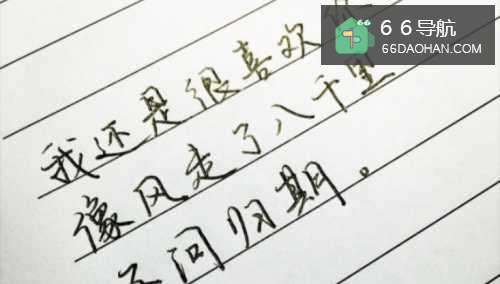 66导航
66DAOHAN.COM
我还是很喜欢你
像风走了八千里
不问归期。